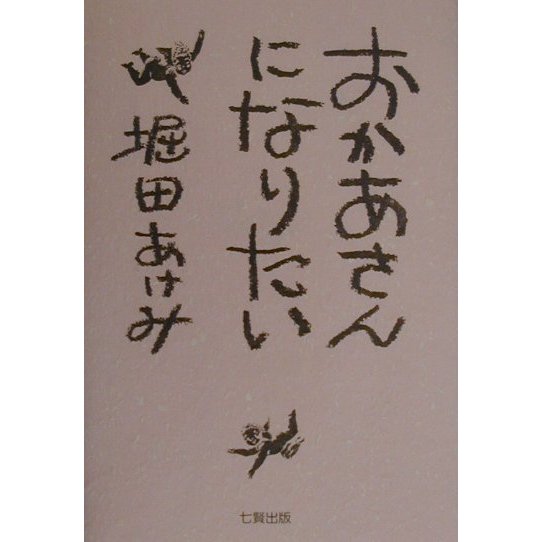 おかあさん
になりたい
堀田あけみ
七賢出版